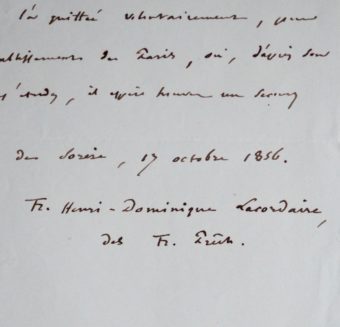 l'a quitté volontairement, pour
établissements de Paris, où, d'après son
il espère trouver un secours
de Sorèze, 17 octobre 1856.
Fr. Henri-Dominique Lacordaire,
des Fr. Prêch.